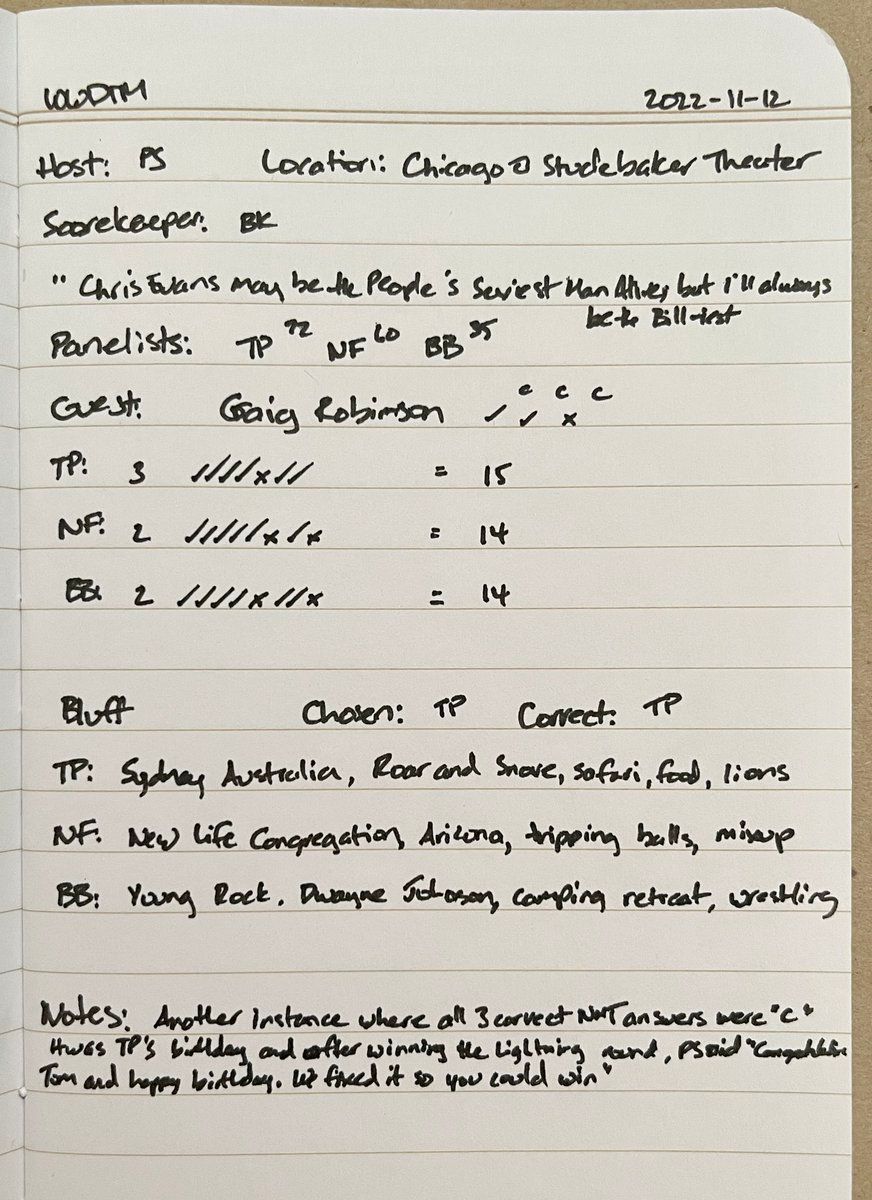 WWDTM 2022-11-12
Host: PS Location: Chicago @ Studebaker Theater
Scorekeeper: BK
"Chris Evans may be the People's Sexiest Man Alive, but I'll always
be the Bill-iest
Panelists: TP 72 NF 60 BB 35
Guest: Craig Robinson ✓ ✓ x C C C
TP: 3 ////x// = 15
NF: 2 /////x/x = 14
BB: 2 ////x//x = 14
Bluff Chosen: TP Correct: TP
TP: Sydney Australia, Roar and Snore, safari, food, lions
NF: New Life Congregation, Arizona, tripping balls, mixup
BB: Young Rock. Dwayne Johnson, camping retreat, wrestling
Notes: Another instance where all 3 correct NMJ answers were "C"
It was TP's birthday and after winning the Lightning round, PS said "Congratulations
Tom and happy birthday. We fixed it so you could win"